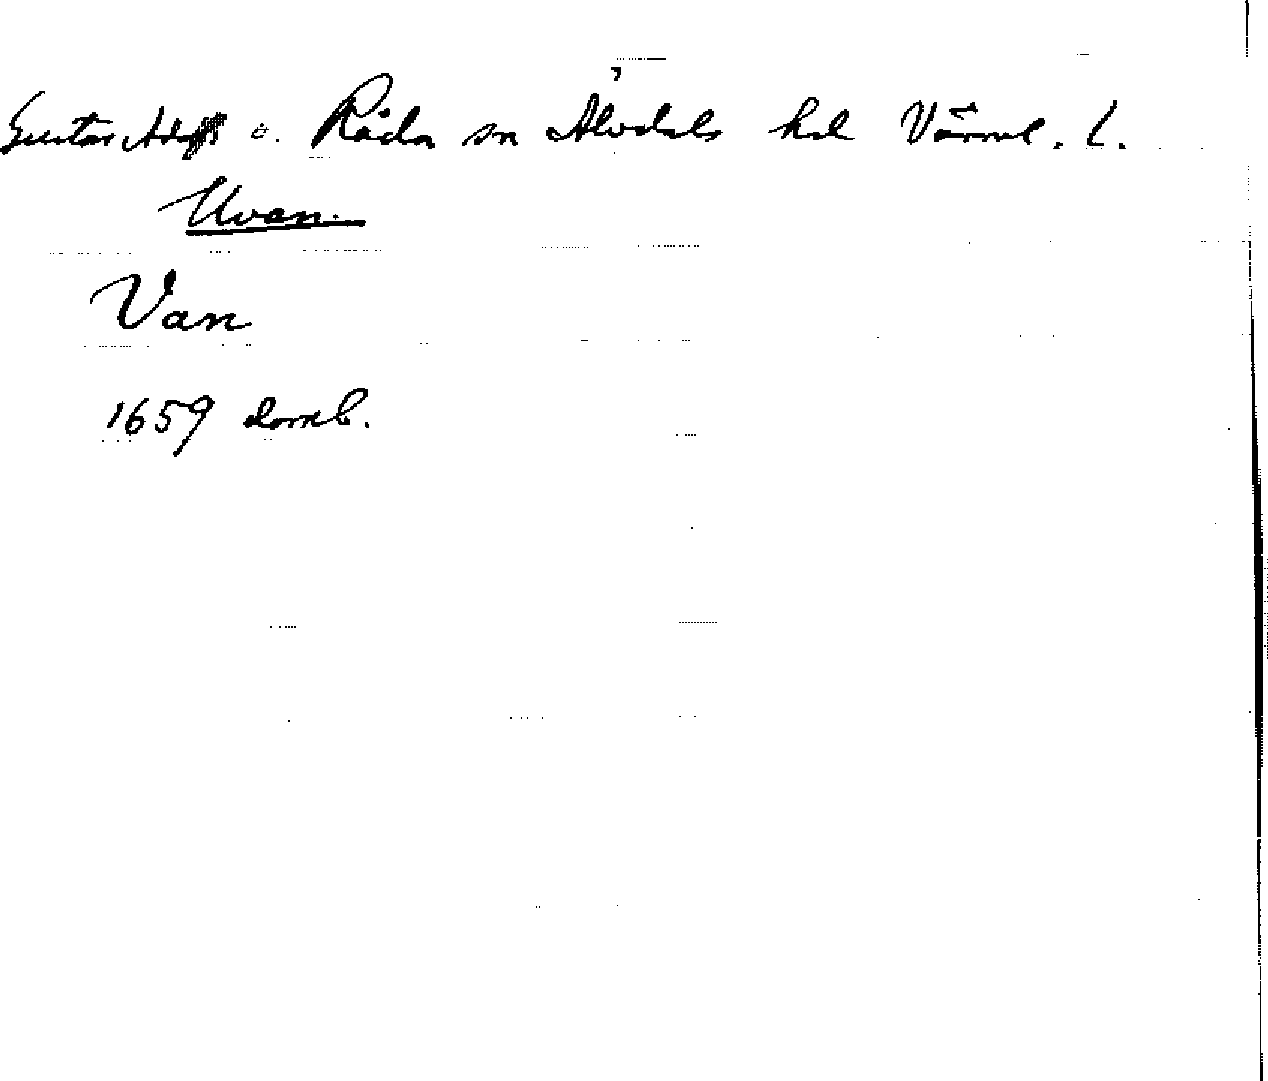 Gustav Adolfs o. Råda sn Älvdals hd Värml. l.
Uvan.
Van
1659 domb.